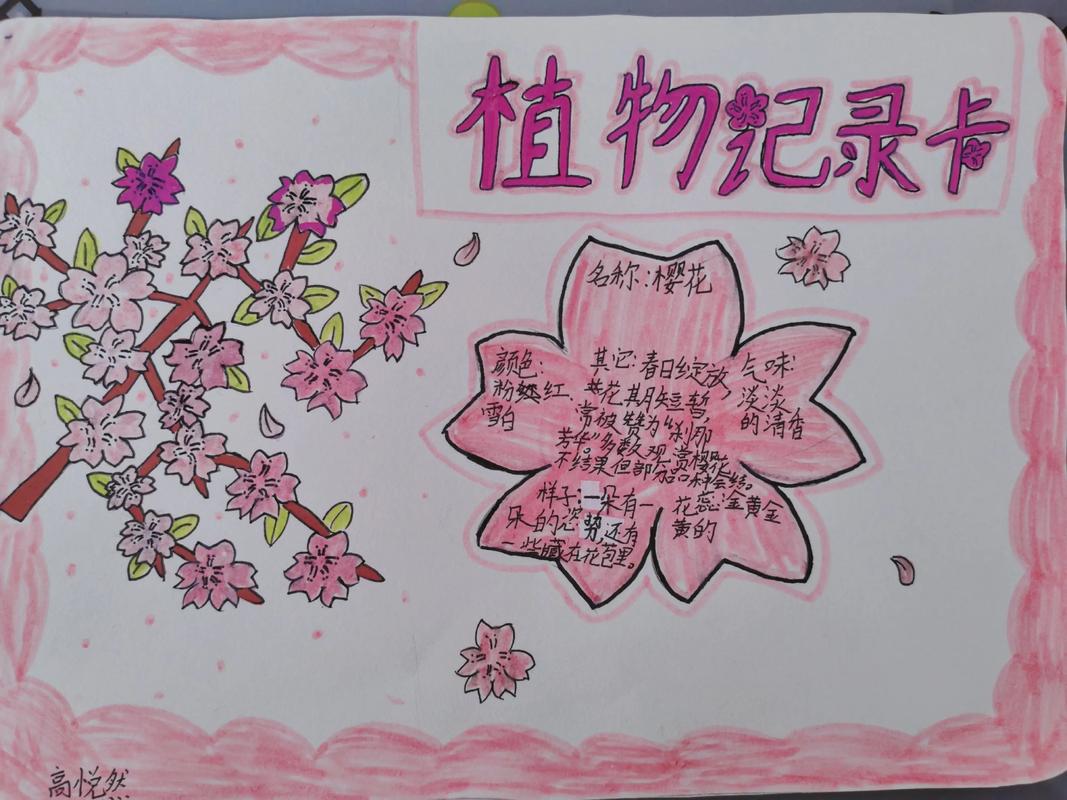 植物记录卡
名称:樱花
颜色:
粉红、
雪白
其它:春日绽放,
花期短暂,
常被赞为“刹那
芳华”多数观赏樱花
不结果但部分品种会结。
气味:
淡淡
的清香
样子:一朵有一
朵的姿势,还有
一些藏在花苞里。
花蕊:金黄金
黄的
高悦然